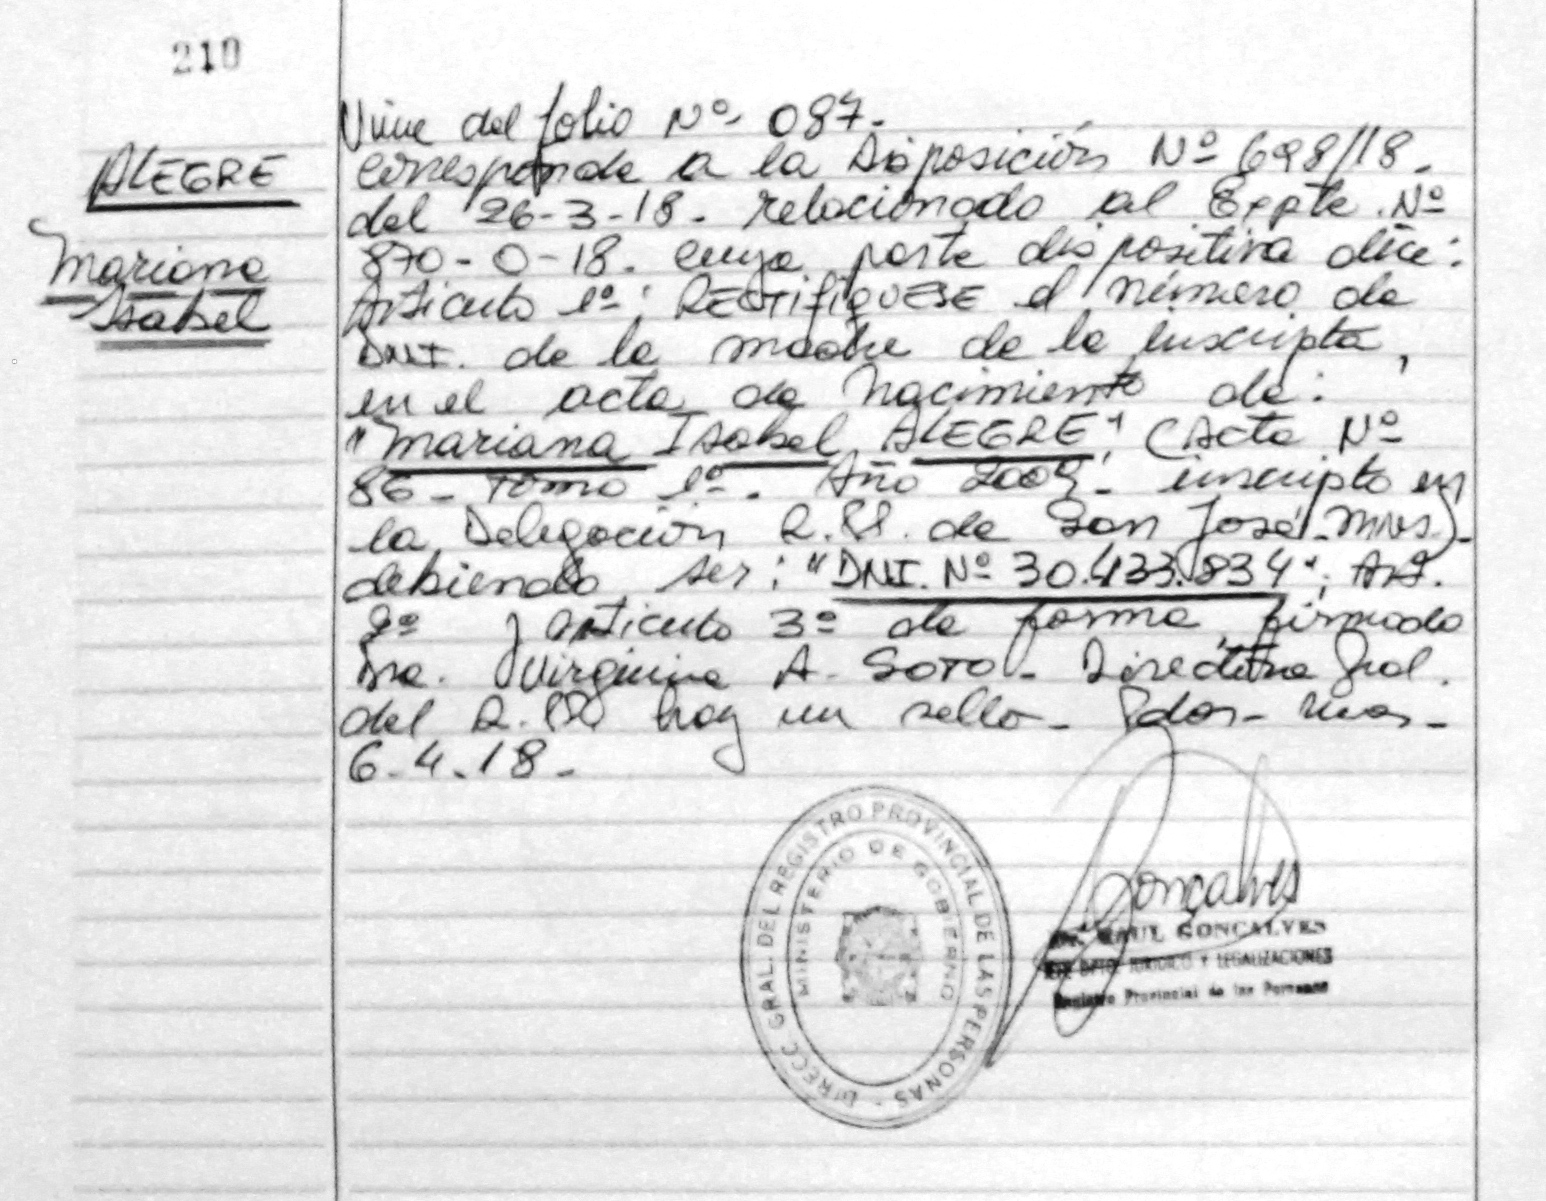 210
ALEGRE
Mariana
Isabel
Viene del folio Nº 087.
corresponde a la Disposición Nº 698/18.
del 26-3-18. relacionado al Expte. Nº
870-0-18. cuya parte dispositiva dice:
Articulo 1º: RECTIFIQUESE el número de
DNI. de la madre de la inscripta,
en el acta de Nacimiento de:
"Mariana Isabel ALEGRE", (Acta Nº
86- Tomo 1º. Año 2009- inscripto en
la Delegación R.PP. de San José-Mnes)-
debiendo ser: "DNI. Nº 30.433.834". Art.
2º y articulo 3º de forma firmado
Dra. Virginia A. SOTO- Directora Gral.
del R.PP hay un sello- Pdas- Mnes-
6.4.18-
DIRECC. GRAL. DEL REGISTRO PROVINCIAL DE LAS PERSONAS -
MINISTERIO DE GOBIERNO
Gonçalves
RAUL GONCALVES
JEFE DPTO. JURIDICO Y LEGALIZACIONES
Registro Provincial de las Personas